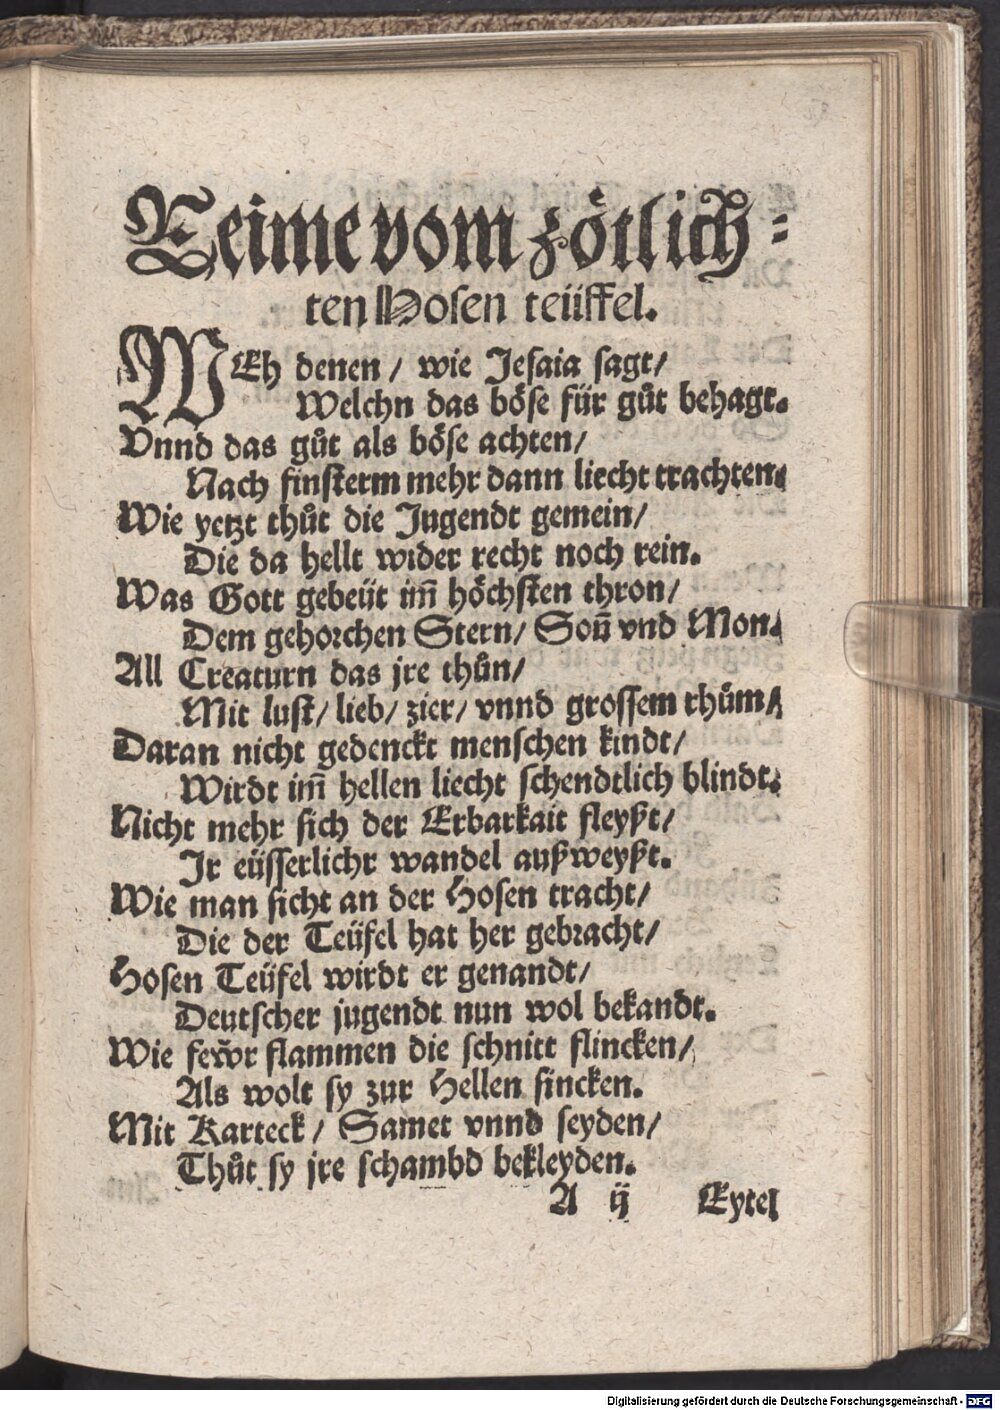 Reime vom zötlich⸗
ten Hosen teüffel.
WEh denen / wie Jesaia sagt/
Welchn das böse für gůt behagt.
Vnnd das gůt als böse achten/
Nach finsterm mehr dann liecht trachten.
Wie yetzt thůt die Jugendt gemein/
Die da hellt wider recht noch rein.
Was Gott gebeüt im̃ höchsten thron/
Dem gehorchen Stern/ Soñ vnd Mon.
All Creaturn das jre thůn/
Mit lust/ lieb/ zier/ vnnd grossem rhům/
Daran nicht gedenckt menschen kindt/
Wirdt im̃ hellen liecht schendtlich blindt.
Nicht mehr sich der Erbarkait fleyßt/
Ir eüsserlichr wandel außweyßt.
Wie man sicht an der Hosen tracht/
Die der Teüfel hat her gebracht/
Hosen Teüfel wirdt er genandt/
Deutscher jugendt nun wol bekandt.
Wie feẘr flammen die schnitt flincken/
Als wolt sy zur Hellen sincken.
Mit Karteck / Samet vnnd seyden/
Thůt sy jre schambd bekleyden.
A ij Eytel
Digitalisierung gefördert durch die Deutsche Forschungsgemeinschaft - DFG